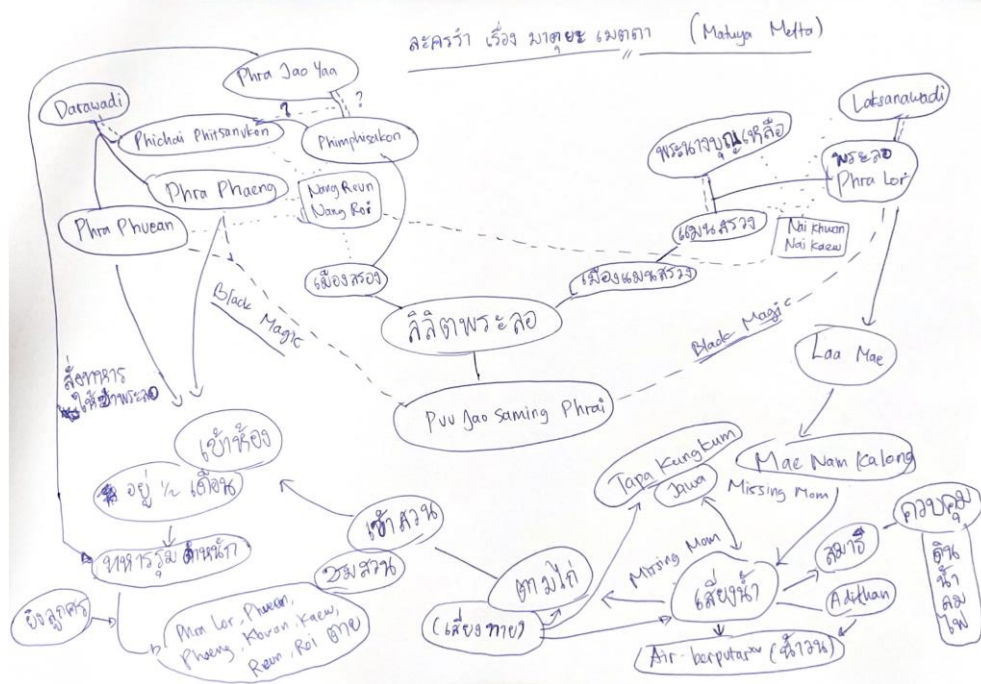 ละครรำ เรื่อง มาตุยะ เมตตา (Matuya Metta)
Phra Jao Yaa
Darawadi
Phichai Phitsanukon
?
?
Phimphisakon
Phra Phaeng
Nang Reun
Nang Roi
Phra Phuean
เมืองสรอง
Laksanawadi
พระนางบุญเหลือ
พระลอ
Phra Lor
แมนสรวง
Nai Khwan
Nai Kaew
เมืองแมนสรวง
ลิลิตพระลอ
Black Magic
Black Magic
Puu Jao Saming Phrai
Laa Mae
สั่งทหาร
ให้ฆ่าพระลอ
เข้าห้อง
อยู่ ½ เดือน
ทหารรุมตำหนัก
ยิงลูกศร
Phra Lor, Phuean,
Phaeng, Khwan, Kaew,
Reun, Roi ตาย
เข้าสวน
ชมสวน
ตามไก่
(เสี่ยงทาย)
Tapa Kungkum
Jawa
Mae Nam Kalong
Missing Mom
Missing Mom
เสี่ยงน้ำ
สมาธิ
ควบคุม
ดิน
น้ำ
ลม
ไฟ
Adithan
Air-berputar (น้ำวน)